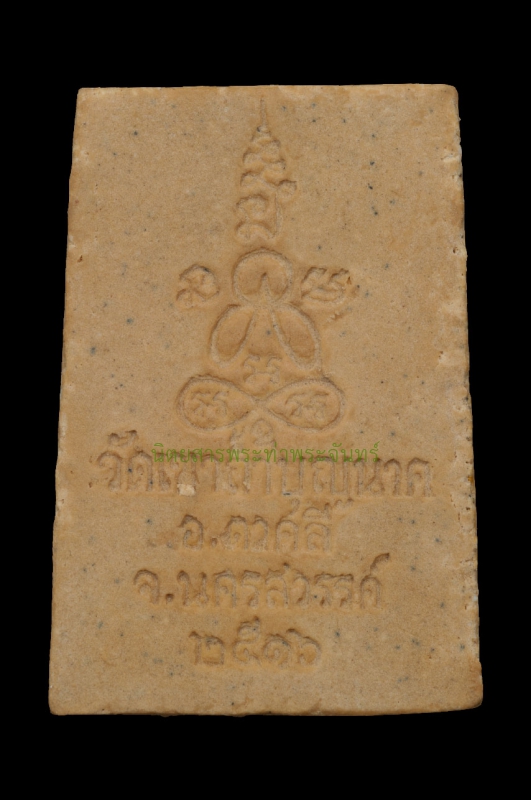 นิตยสารพระท่าพระจันทร์
วัดเขาถ้ำบุญนาค
อ.ตาคลี
จ.นครสวรรค์
๒๕๑๖